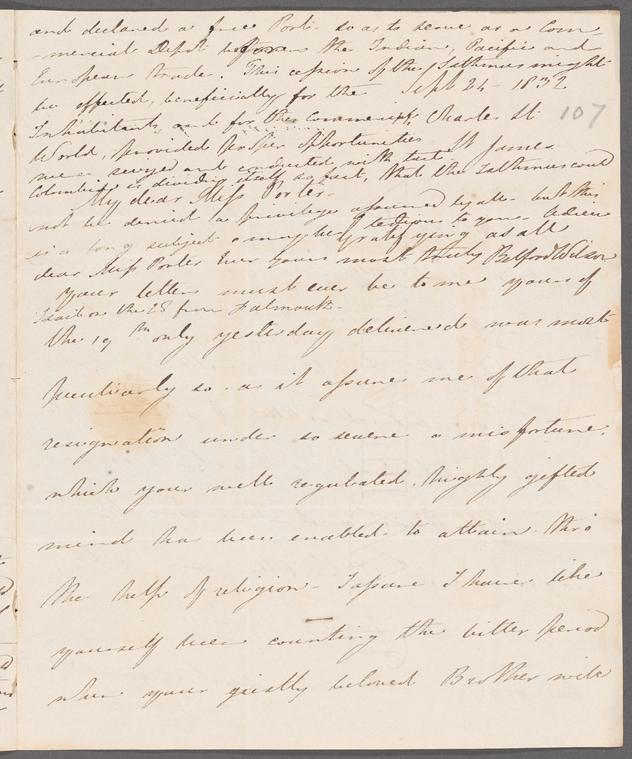 and declared a free Port. so as to serve as a Com-
-mercial Depot before the Indian, Pacific and
European trade. This cession of the Isthmus might
be effected, beneficially for the Sept 24 - 1832
Inhabitants and for the Commercial, Charles St
107
World, provided proper opportunities St James
were seized and conducted with tact.
Columbia is dividing itself so fast, that the Isthmus could
My dear Miss Porter
not be denied a privilege assured by all - but this
is a long subject & may be tedious to you - Adieu
gratifying as all
dear Miss Porter Ever yours most truly Belford Wilson
your letters must ever be to me yours of
I sail on the 25 from Falmouth -
the 19th only yesterday delivered was most
peculiarly so - as it assures me of that
resignation under so severe a misfortune,
which your well regulated, highly gifted
mind has been enabled to attain thro
the help of religion - I assure I have like
yourself been counting the bitter period
when your justly beloved Brother wild